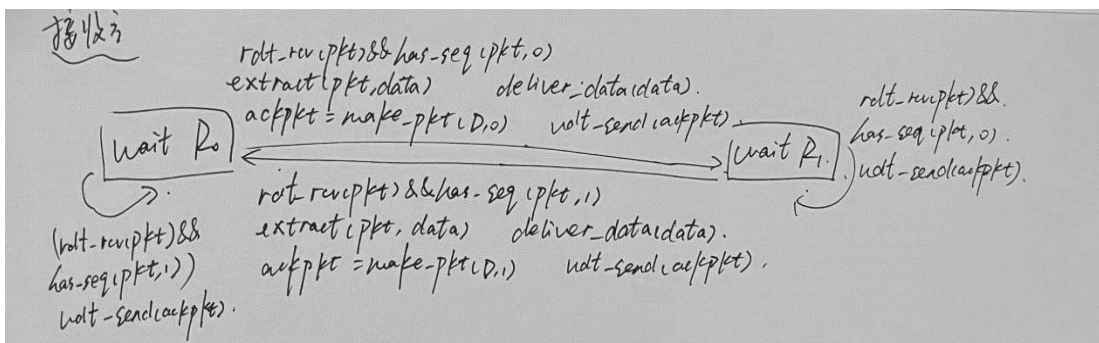 接收方
rdt_rcv(pkt)&&has_seq(pkt,0)
extract(pkt,data) deliver_data(data).
ackpkt=make_pkt(D,0) udt_send(ackpkt).
wait R0
wait R1.
rdt_rcv(pkt)&&.
has_seq(pkt,0).
udt_send(ackpkt).
rdt_rcv(pkt)&&has_seq(pkt,1)
extract(pkt,data) deliver_data(data).
ackpkt=make_pkt(D,1) udt_send(ackpkt).
(rdt_rcv(pkt)&&
has_seq(pkt,1))
udt_send(ackpkt).